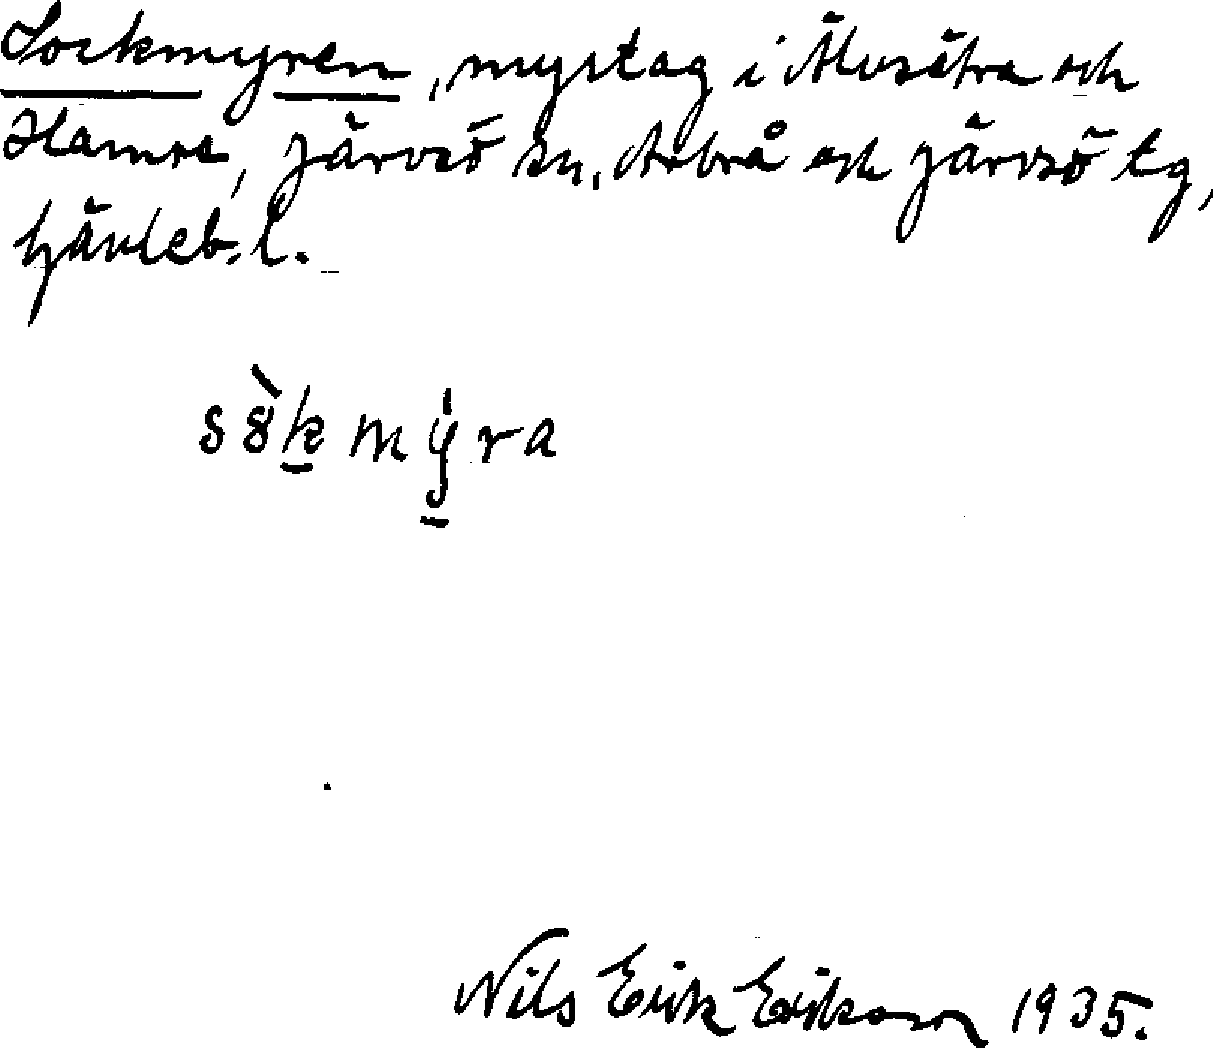 Sockmyren, myrtag i Älvsätra och
Hamre, Järvsö sn, Arbrå och Järvsö tg,
Gävleb. l.
sȣ̀kmy̠ra
Nils Erik Erikson 1935.